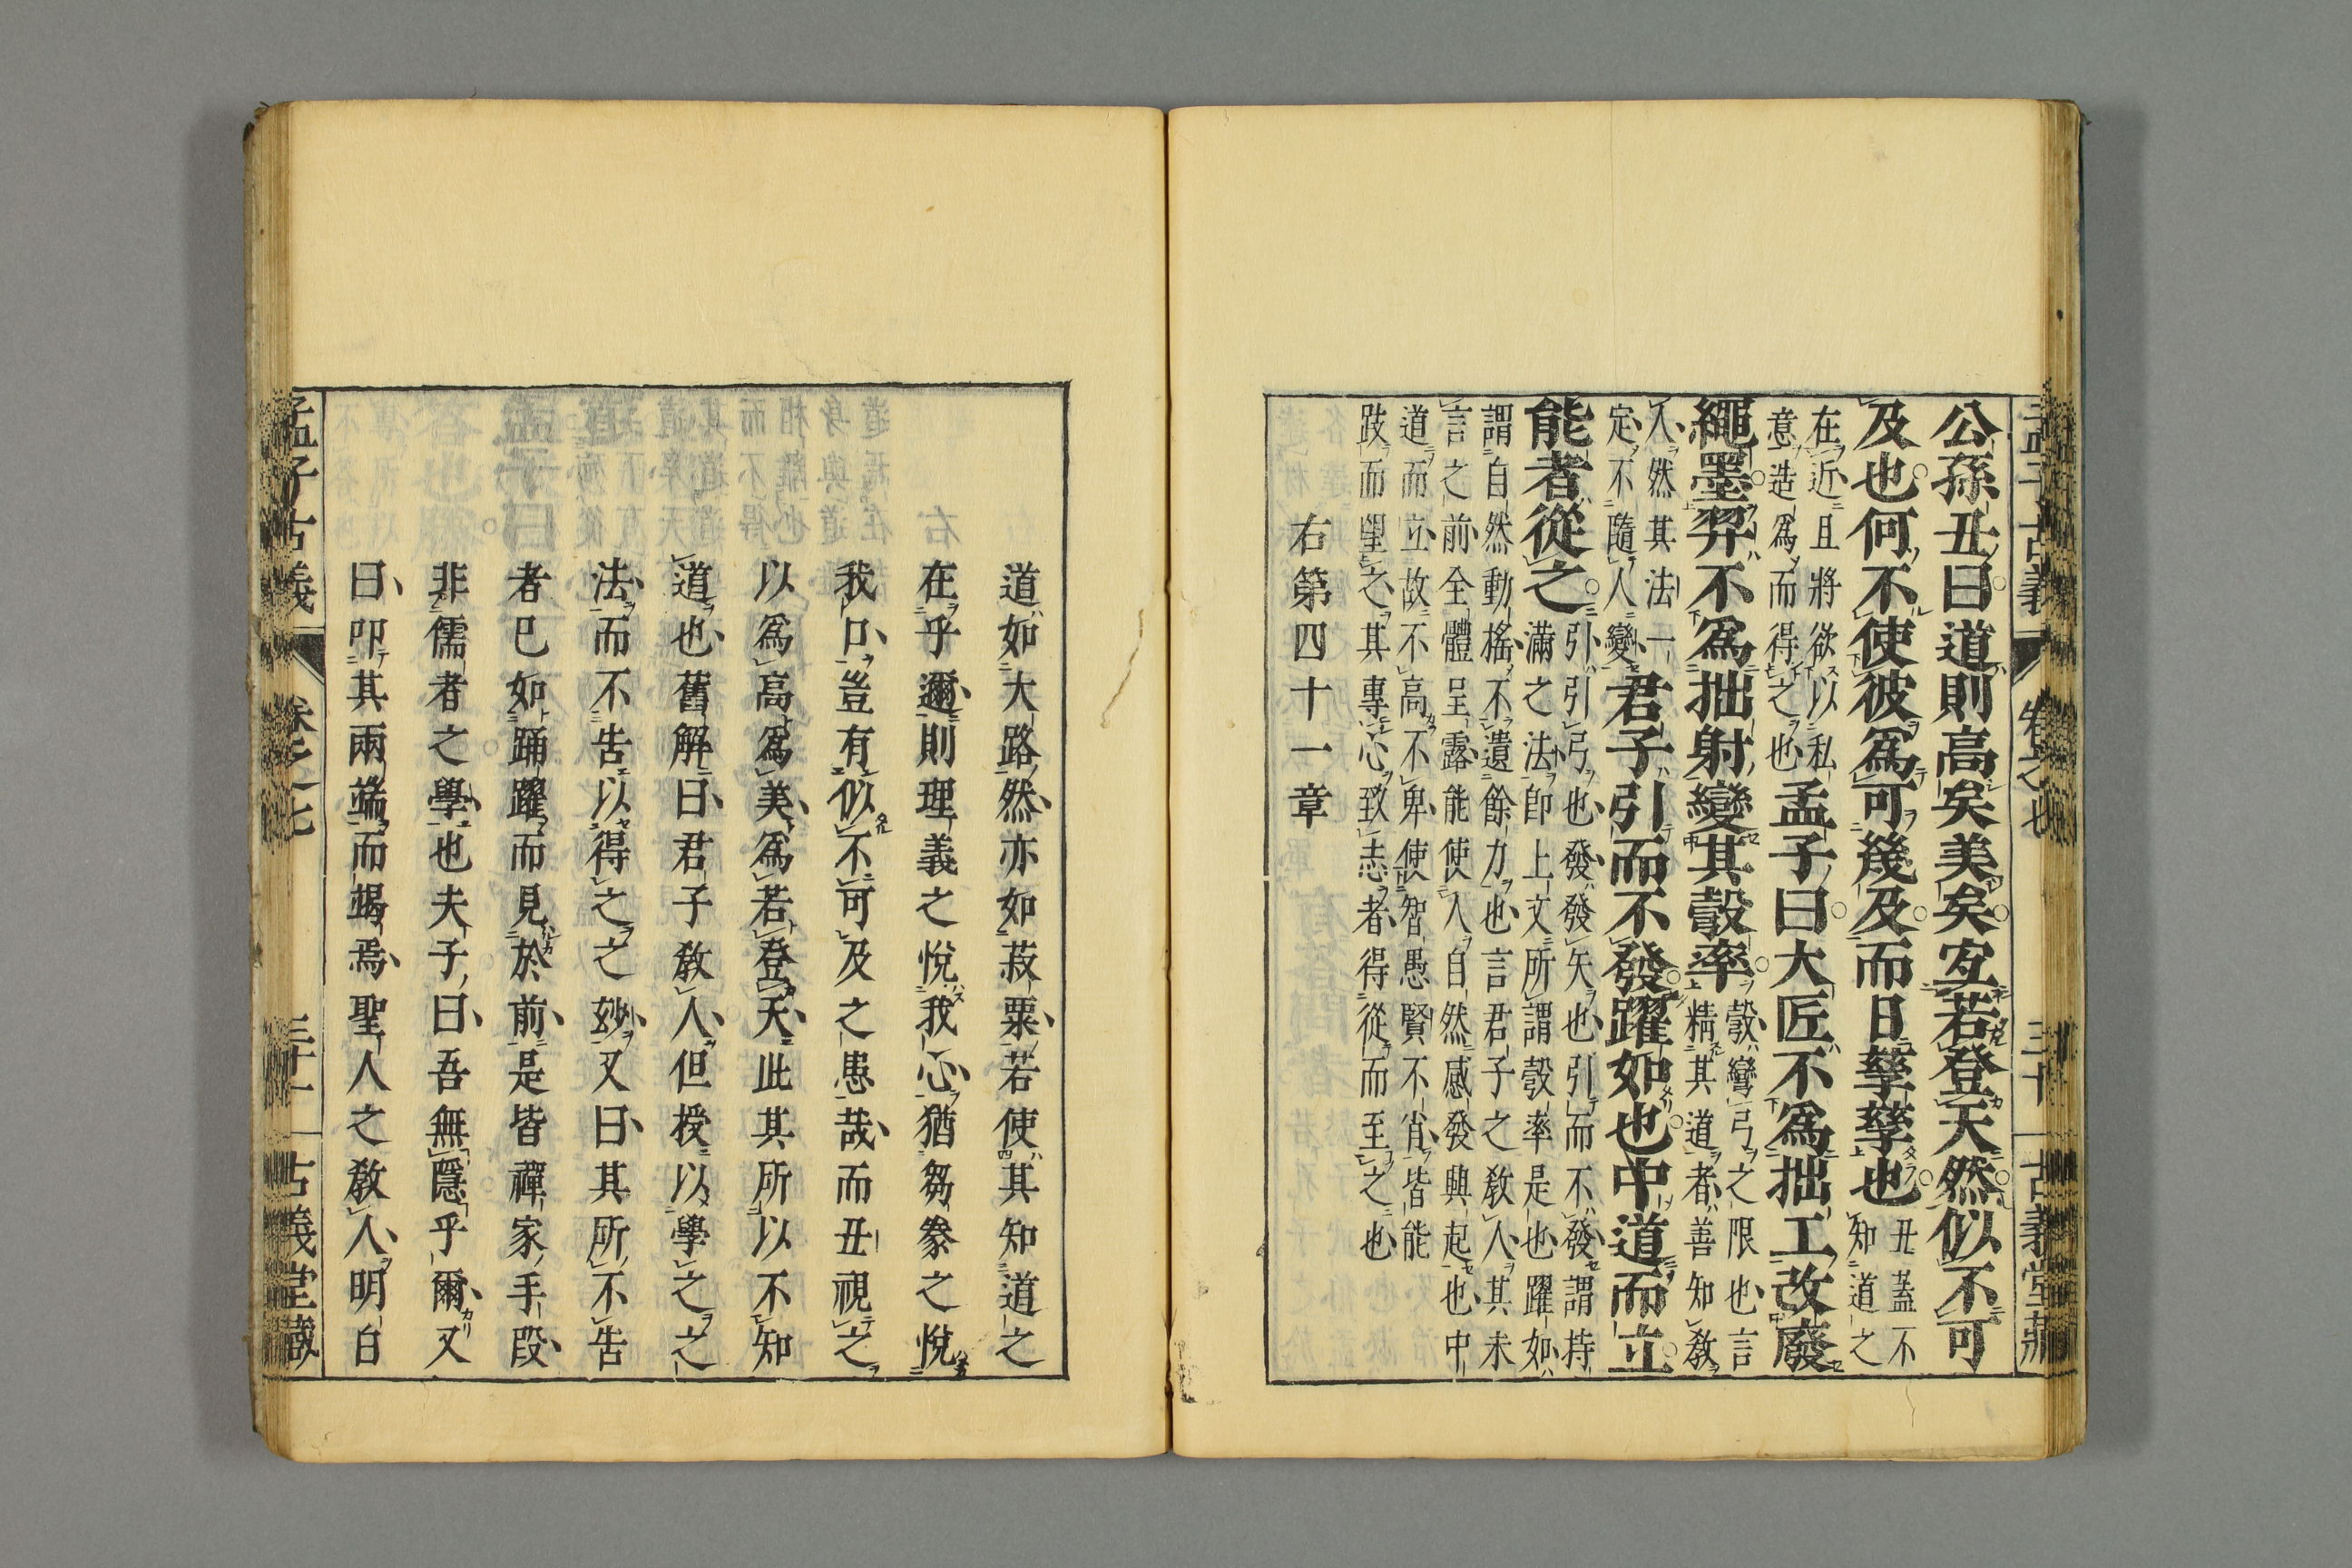 孟子古義 卷之七 三十 古義堂藏
公孫丑曰道則高矣美矣宜若登天然似不可
及也何不使彼爲可幾及而日孳孳也
丑蓋不
知道之
在近且將欲以私
意造爲而得之也
孟子曰大匠不爲拙工改廢
繩墨羿不爲拙射變其彀率
彀彎弓之限也言
精其道者善知教
人然其法一
定不隨人變
君子引而不發躍如也中道而立
能者從之
引引弓也發發矢也引而不發謂持
滿之法卽上文所謂彀率是也躍如
謂自然動搖不遺餘力也言君子之教人其未
言之前全體呈露能使人自然感發興起也中
道而立故不高不卑使智愚賢不肖皆能
跂而望之其專心致志者得從而至之也
右第四十一章
道如大路然亦如菽粟若使其知道之
在乎邇則理義之悅我心猶芻豢之悅
我口豈有似不可及之患哉而丑視之
以爲高爲美爲若登天此其所以不知
道也舊解曰君子教人但授以學之之
法而不告以得之之妙又曰其所不告
者已如踊躍而見於前是皆禪家手段
非儒者之學也夫子曰吾無隱乎爾又
曰叩其兩端而竭焉聖人之教人明白
孟子古義 卷之七 三十一 古義堂藏